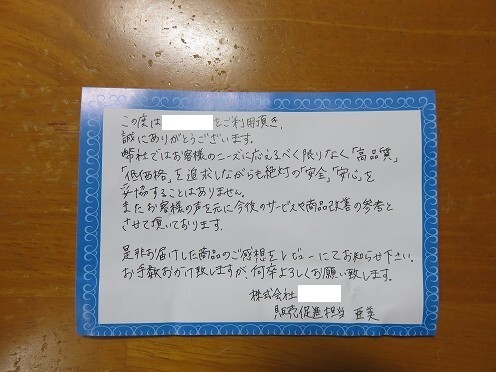 この度は をご利用頂き、
誠にありがとうございます。
弊社ではお客様のニーズに応えるべく限りなく「高品質」
「低価格」を追求しながらも絶対の「安全」「安心」を
妥協することはありません。
またお客様の声を元に今後のサービスや商品改善の参考と
させて頂いております。
是非お届けした商品のご感想をレビューにてお知らせ下さい。
お手数おかけ致しますが、何卒よろしくお願い致します。
株式会社
販売促進担当 亜美